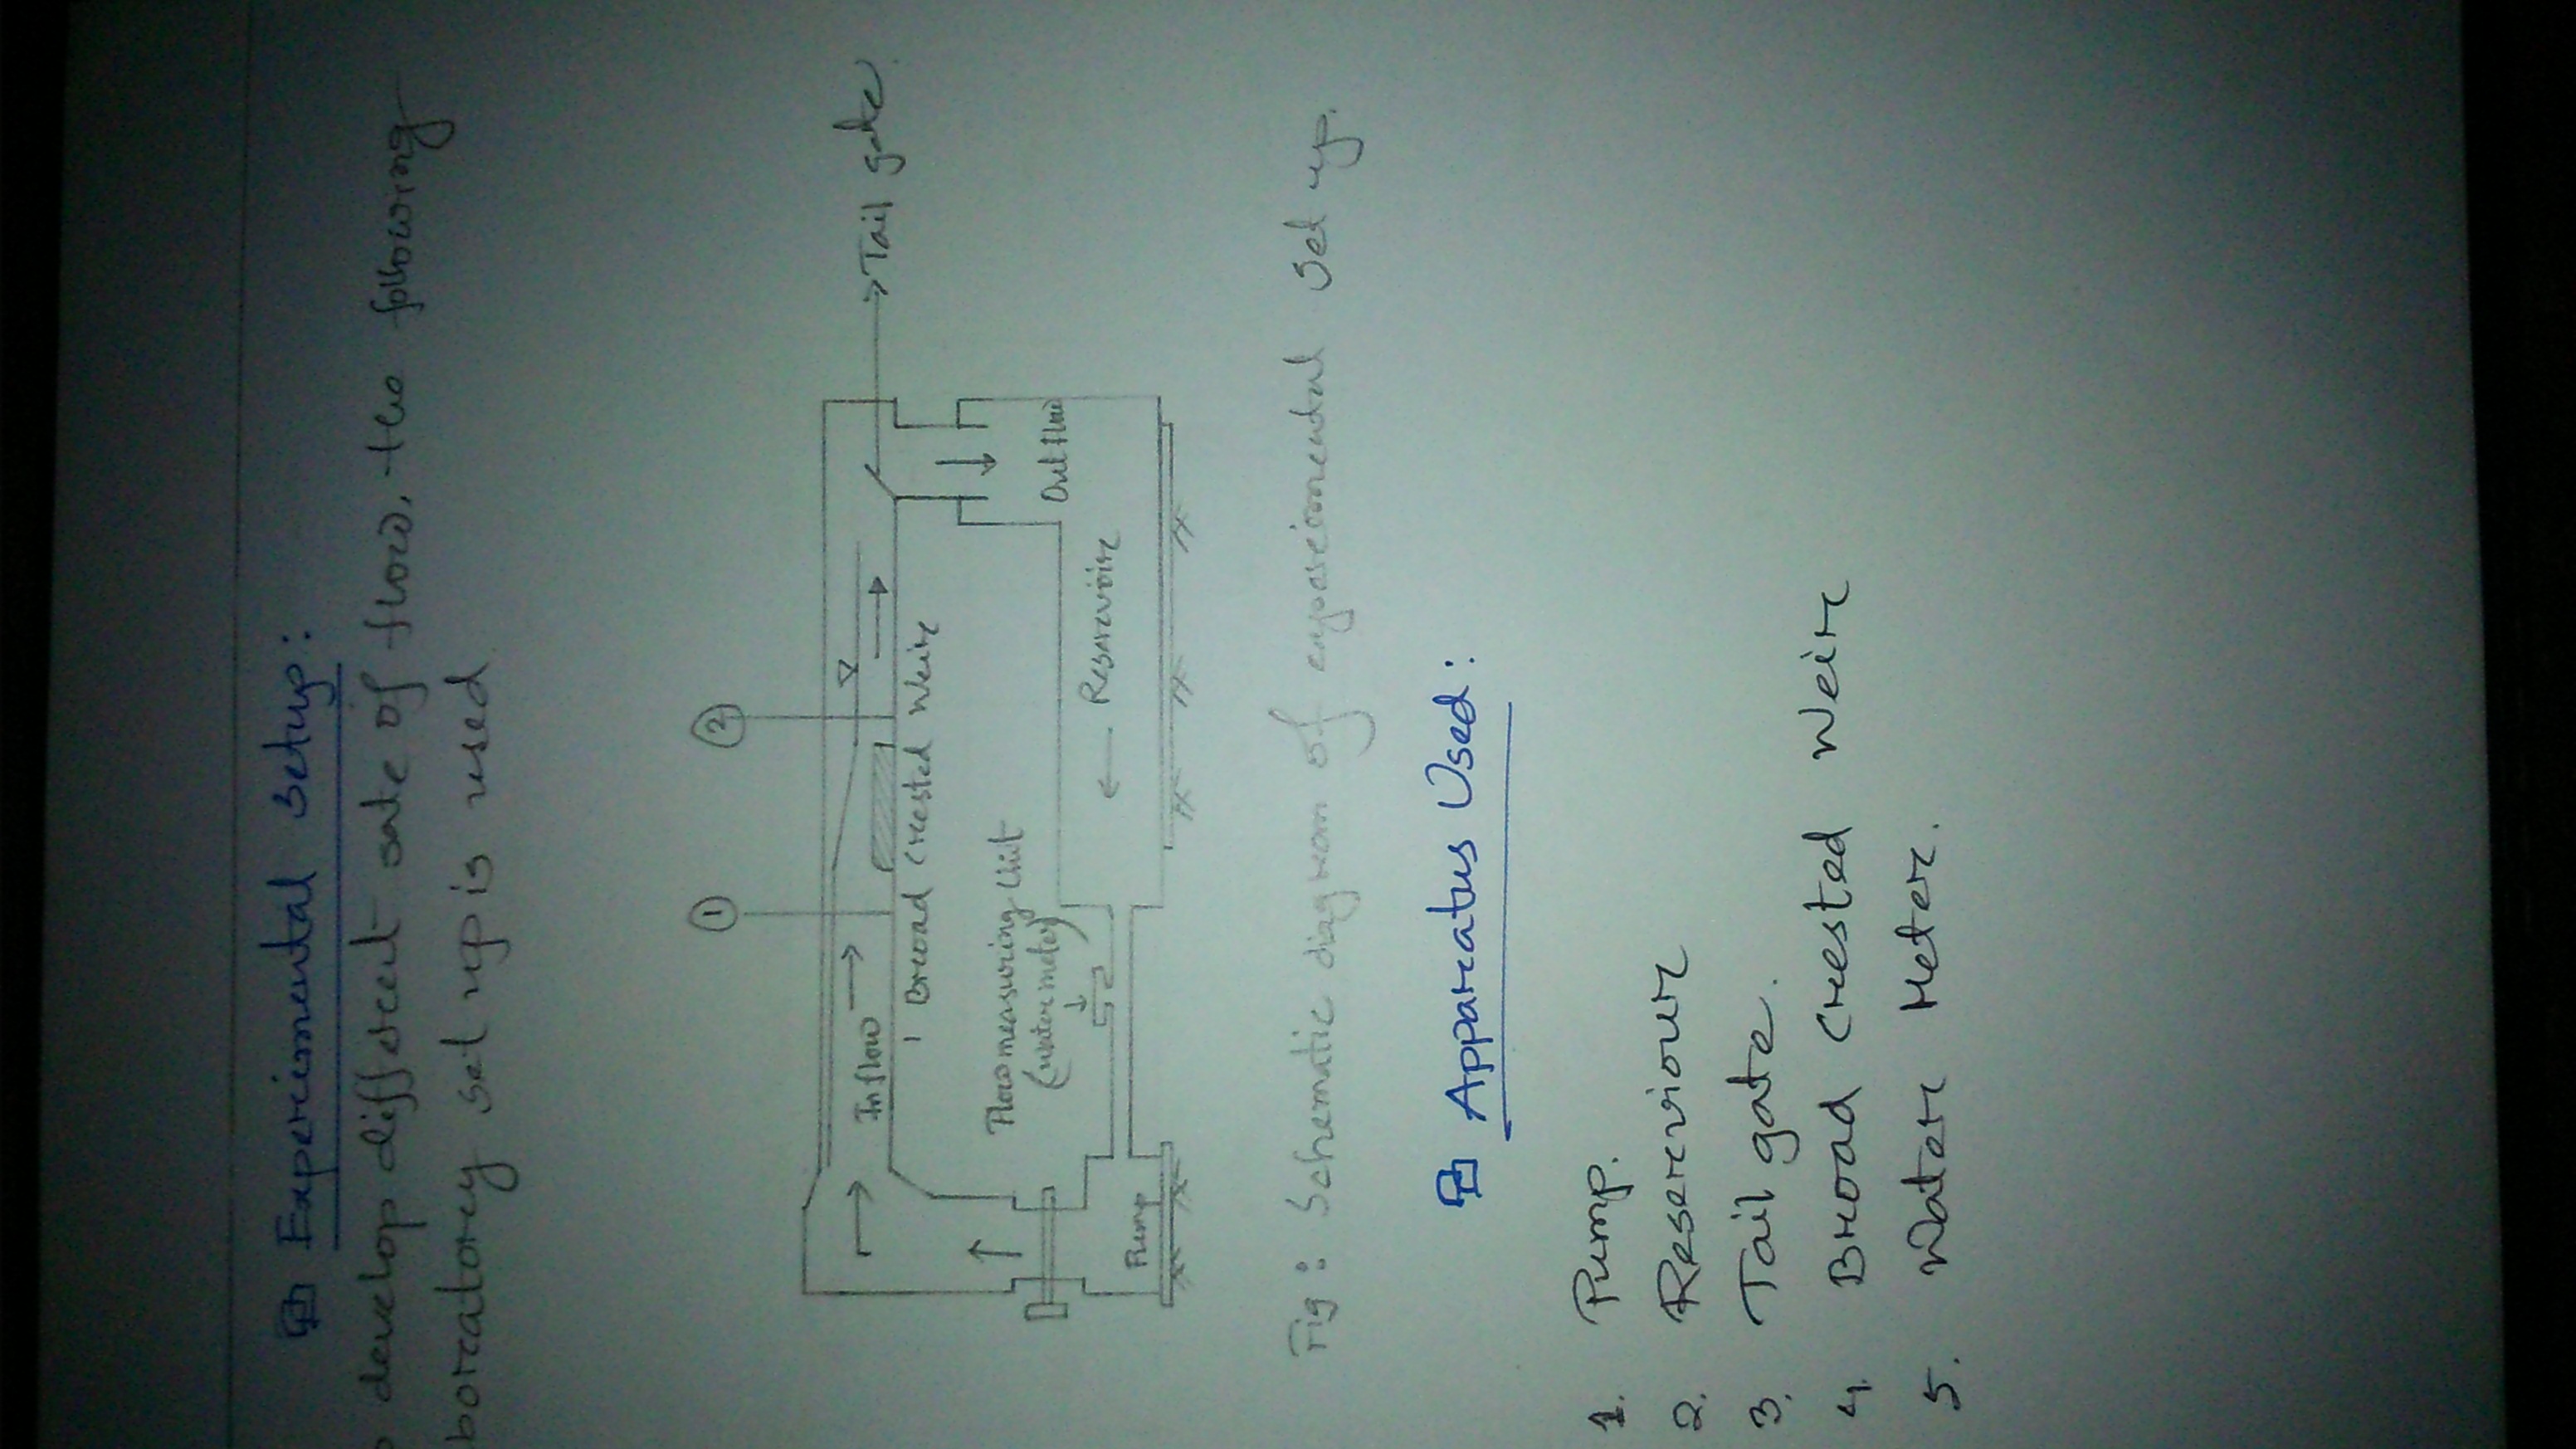 Experimental Setup:
develop different rate of flow, the following
boratory set up is used
① ②
Tail gate
Inflow
Broad Crested Weir
Flow measuring Unit
(water meter)
Outflow
Reservoir
Pump
Fig: Schematic diagram of experimental set up.
Apparatus Used:
1. Pump.
2. Reserviour
3. Tail gate.
4. Broad Crested Weir
5. Water Meter.